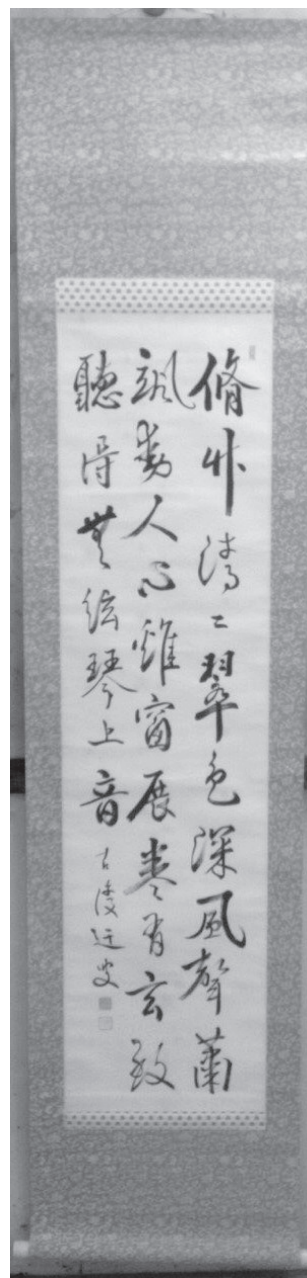 脩竹清〻翠色深風聲蕭
颯動人心雞窗展卷有玄致
聽得無絃琴上音
古迂叟